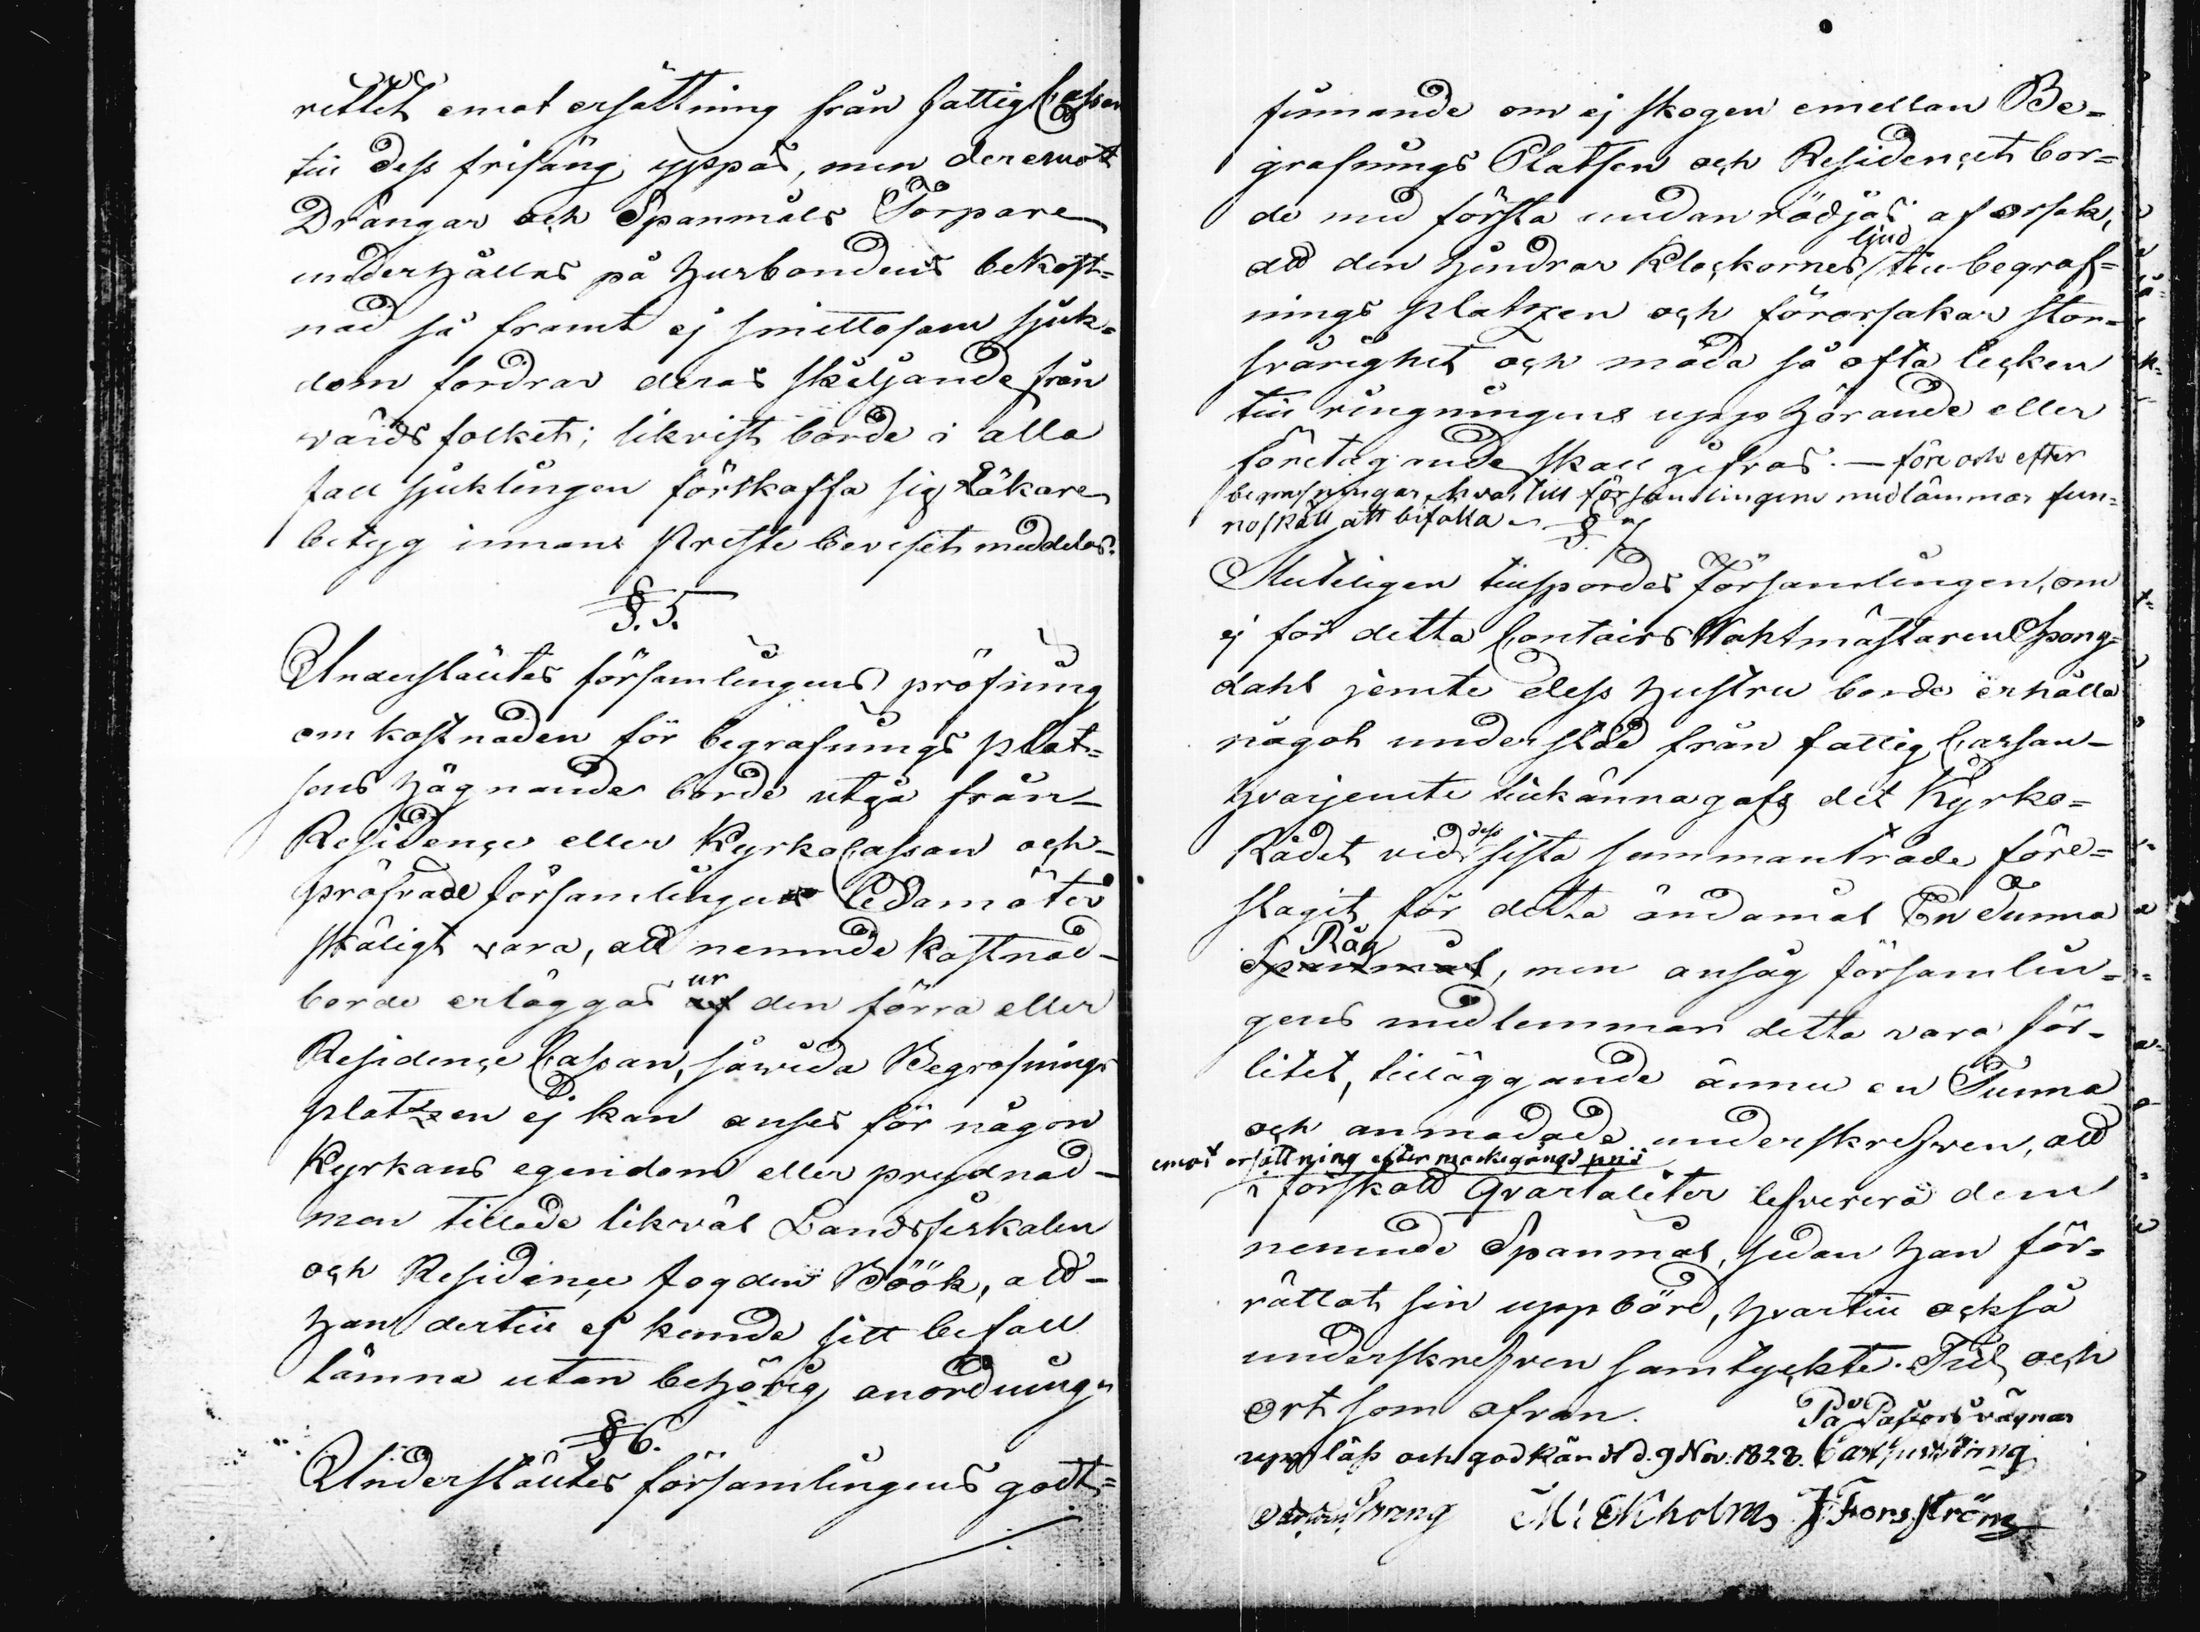 rettet emot ersättning från fattig Cassan
till dess frisäng uppås, men deremott
Drängar och Spanmåls Torpare
underhållas på husbondens bekost=
nad så framt ej smittosam sjuk=
dom fordrar deras skäljande från
vårds folket; likvist borde i alla
fall sjuklingen förskaffa sig Läkare
betyg innan Preste beviset meddelas.
§. 5.
Understäldes församlingens pröfning
om kostnaden för begrafnings plat=
sens hägnande borde utgå från
Residence eller Kyrko Cassan och
pröfvade församlingens Ledamöter
skäligt vara, att nemnde kostnad
borde erläggas ur den förra eller
Residence Cassan, såvida Begrafnings
platzen ej kan anses för någon
Kyrkans egendom eller prydnad
men tillade likväl Landsfiskalen
och Residence fogden Böök, att
han dertill ej kunde sitt befall
lämna utan behörig anordning.
§ 6.
Understäldes församlingens godt=
finnande om ej skogen emellan Be=
grafnings Platsen och Residencet bor=
de med första undanrödjas af orsak,
ljud
att den hindrar Klockornes till begraf=
nings platzen och förorsakar stor
svårighet och möda så ofta tecken
till ringningens upphörande eller
företagande skall gifvas. — före och efter
begrafningar, hvar till församlingens medlämmar fun=
no skäll att bifalla. § 7
Slutligen tillspordes Församlingen, om
ej för detta Contoirs Waktmästaren Spong=
dahl jemte dess hustru borde erhålla
något understöd från fattig Cassan
hvarjemte tillkänna gafs det Kyrko=
Rådet vid dess sista sammanträde före=
slagit för detta ändamål En Tunna
Råg
Spanmål, men ansåg församlin=
gens medlemmar detta vara för
litet, tilläggande ännu en Tunna
och anmodade underskrefven, att
emot ersättning efter markegångs pris
i förskott Qvartaliter lefverera dem
nemnde Spanmål, sedan han för=
rättat sin uppbörd, hvartill också
underskrefven samtyckte. Tid och
ort som ofvan. På Pastors vägnar
uppläst och godkändt d. 9 Nov. 1828.
M: Ekholm J Forsström